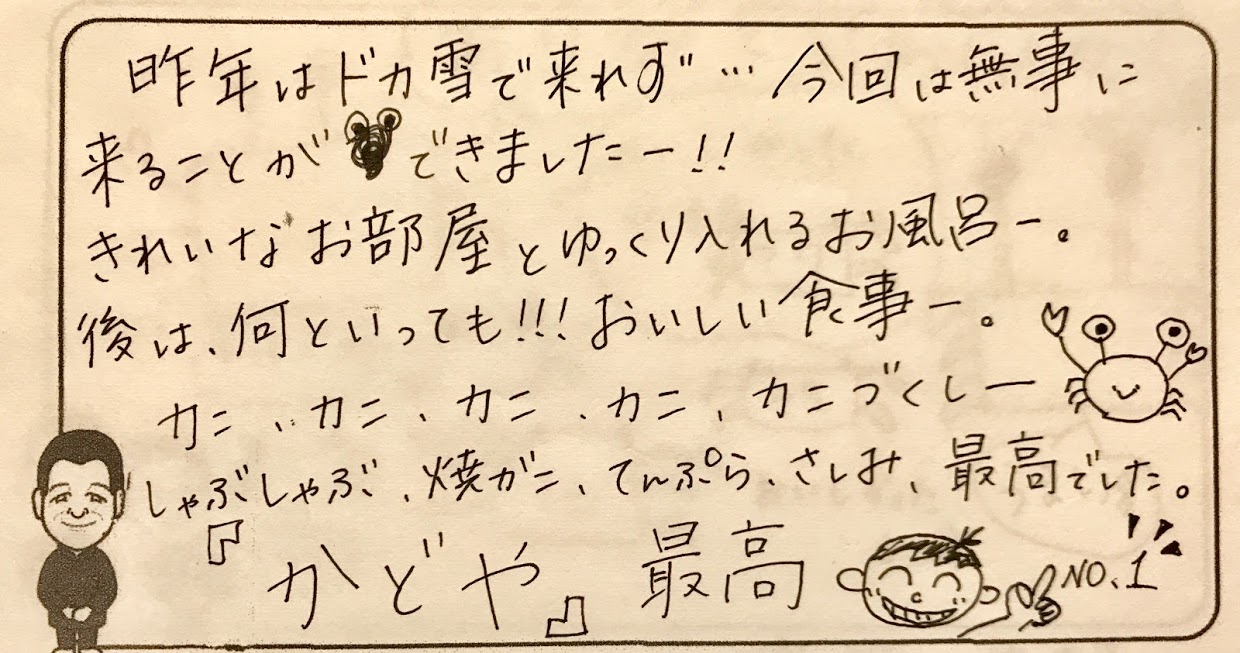 昨年はドカ雪で来れず… 今回は無事に
来ることができましたー!!
きれいなお部屋とゆっくり入れるお風呂ー。
後は、何といっても!!!おいしい食事ー。
カニ、カニ、カニ、カニ、カニづくしー
しゃぶしゃぶ、焼ガニ、てんぷら、さしみ、最高でした。
『かどや』最高 NO.1